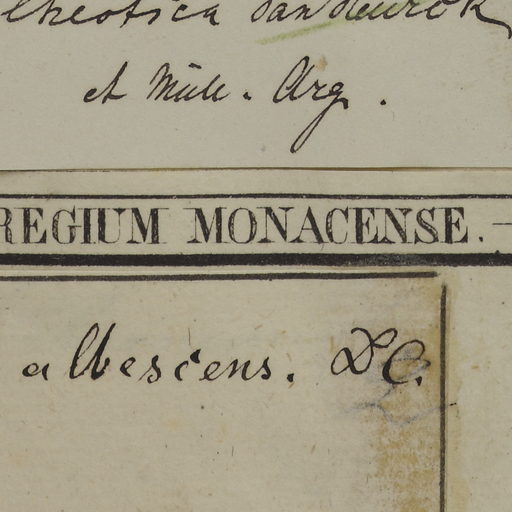 van Heurck
et Müll. Arg.
REGIUM MONACENSE. —
albescens. DC.